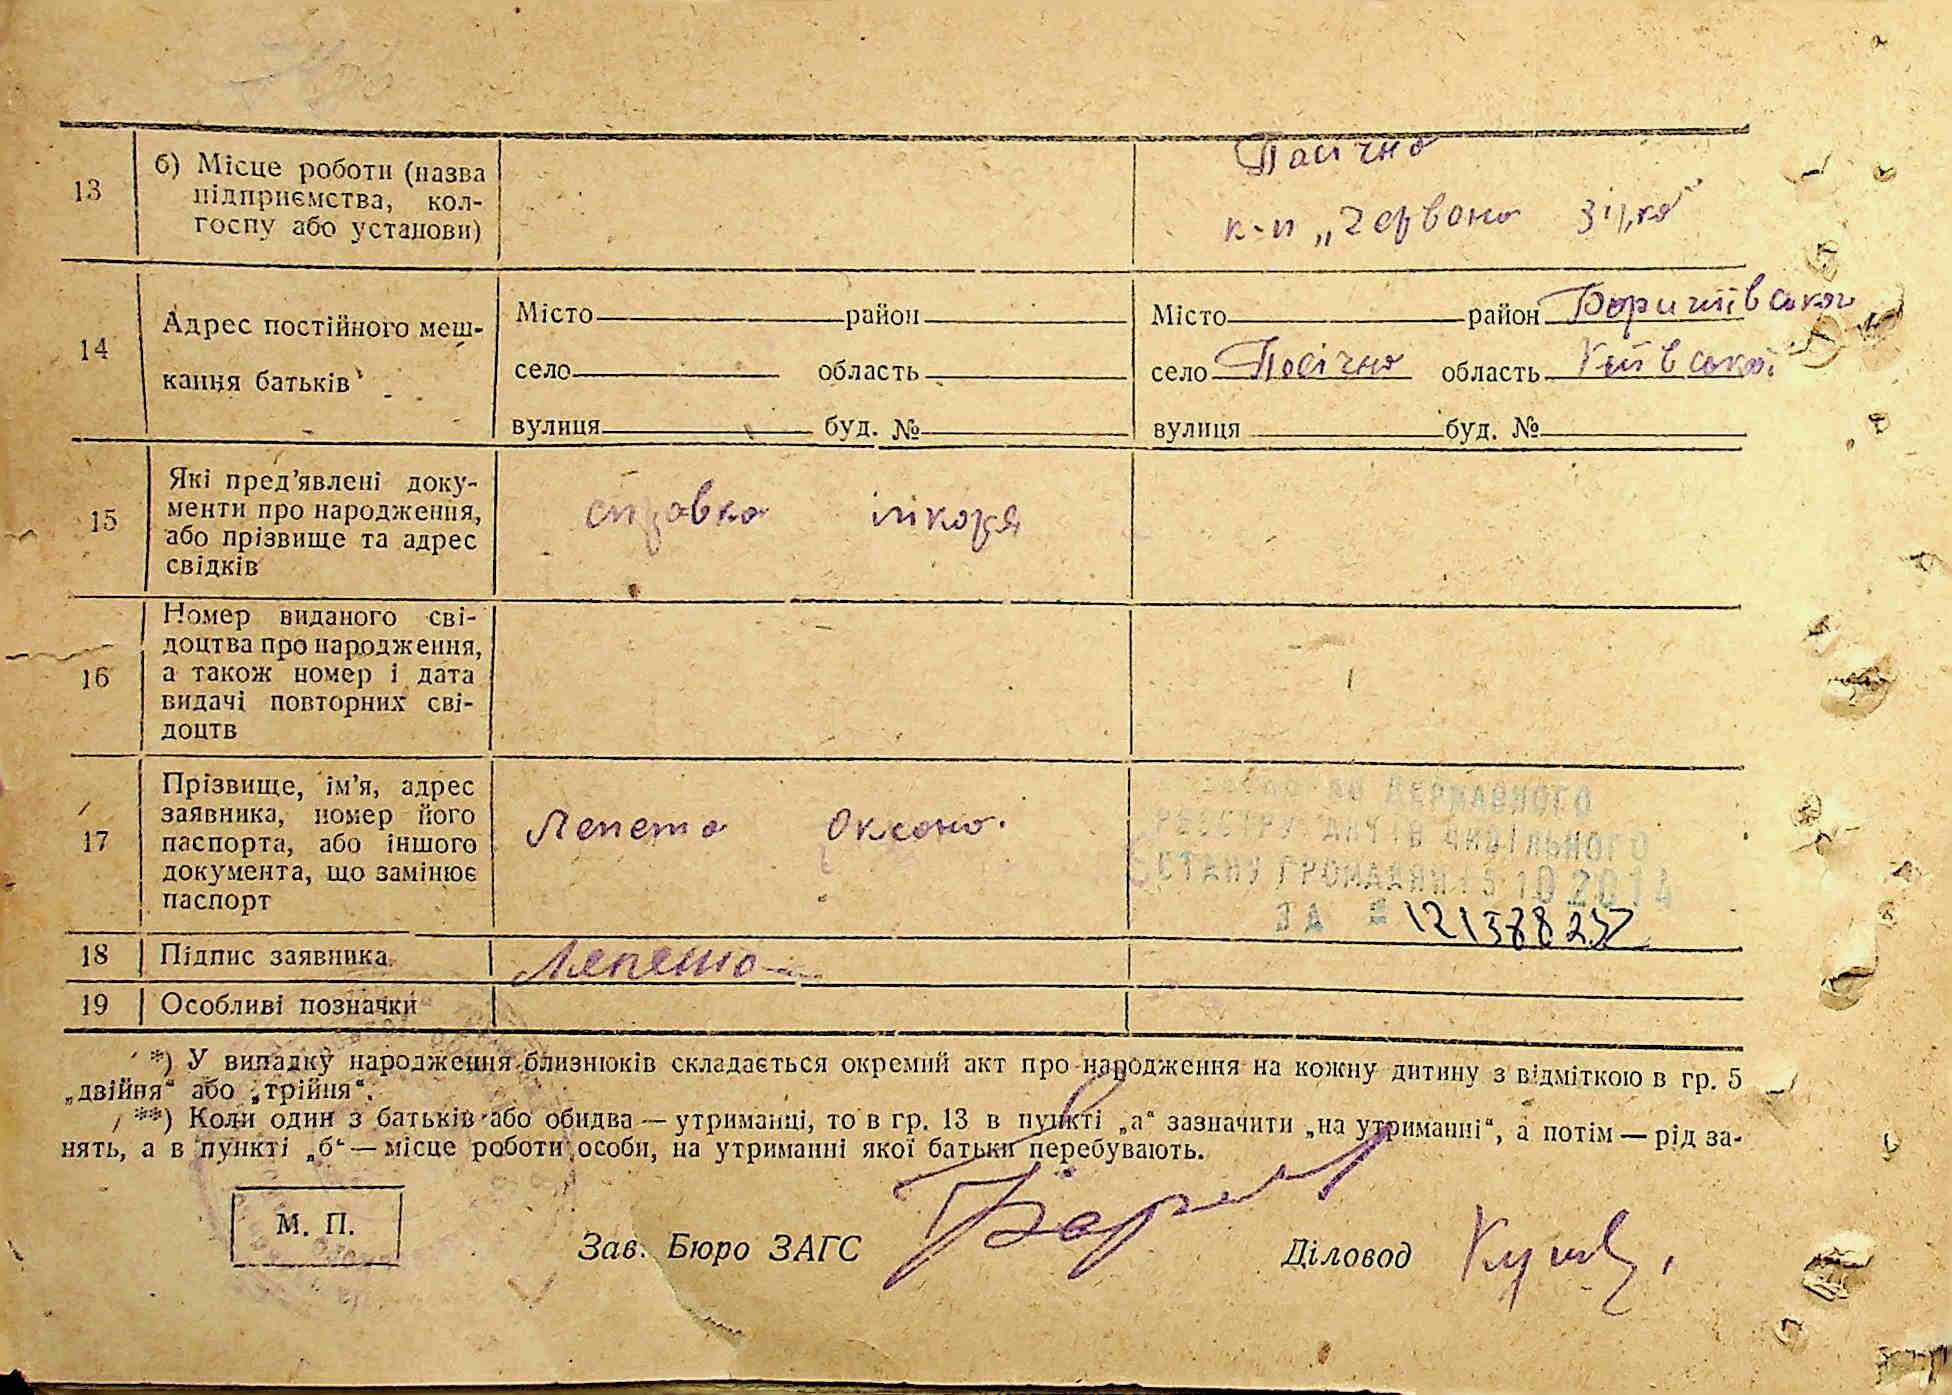 13
б) Місце роботи (назва
підприємства, кол-
госпу або установи)
Пасічна
к-п „Червона Зірка"
14
Адрес постійного меш-
кання батьків
Місто район
село область
вулиця буд. №
Місто район
село Пасічна область Київської
вулиця буд. №
15
Які пред'явлені доку-
менти про народження,
або прізвище та адрес
свідків
справка лікаря
16
Номер виданого сві-
доцтва про народження,
а також номер і дата
видачі повторних сві-
доцтв
17
Прізвище, ім'я, адрес
заявника, номер його
паспорта, або іншого
документа, що замінює
паспорт
Лепета Оксана.
ДО ДЕРЖАВНОГО
РЕЄСТРУ АКТІВ ЦИВІЛЬНОГО
СТАНУ ГРОМАДЯН 15 10 2014
ЗА №
18 Підпис заявника Лепета
19 Особливі позначки
*) У випадку народження близнюків складається окремий акт про народження на кожну дитину з відміткою в гр. 5
„двійня“ або „трійня“.
**) Коли один з батьків або обидва — утриманці, то в гр. 13 в пункті „а“ зазначити „на утриманні“, а потім — рід за-
нять, а в пункті „б“ — місце роботи особи, на утриманні якої батьки перебувають.
М. П.
Зав. Бюро ЗАГС
Діловод